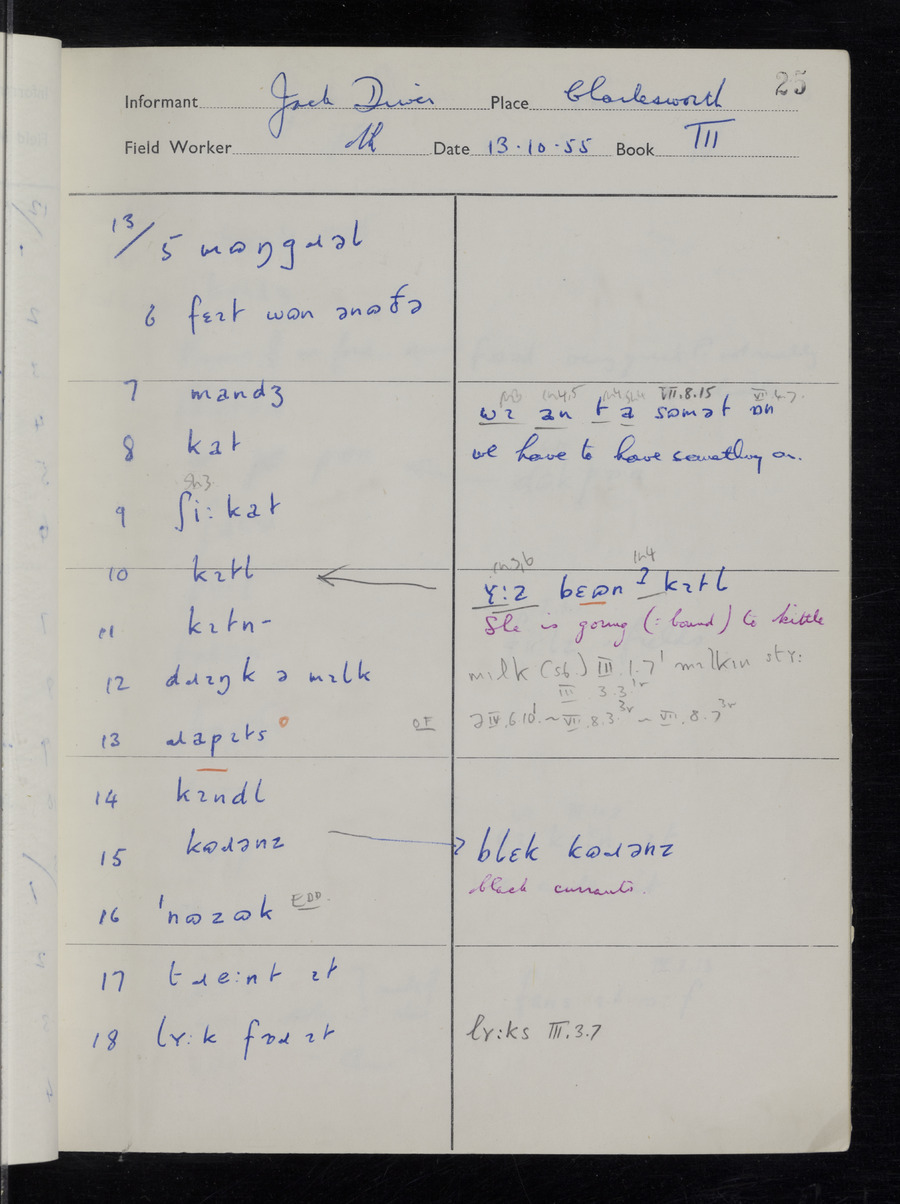 25
Informant Jack Driver Place Charlesworth
Field Worker Date 13·10·55 Book III
13/5 mɷŋgɹəl
6 fɛɪt wɷn ənɷðə
7 mandʒ
8 kat
9 ʃi: kat
10 kɪtl
11 kɪtn-
12 dɹɪŋk ə mɪlk
13 ɹapɪts°
14 kɪndl
15 kɷɹənz
16 'nɷzɷk EDD.
17 tɹe:nt ɪt
18 lʏ:k fɒɹ ɪt
VII.8.15
wɪ an t a sɷmət ɒn
we have to have something on.
ʏ:z bɛɷn ʔ kɪtl
She is going (: bound) to kittle
milk (sb.) III.1.7' mɪlkɪn stʏ:
III 3.3
blɛk kɷɹənz
black currants.
lʏ:ks III.3.7